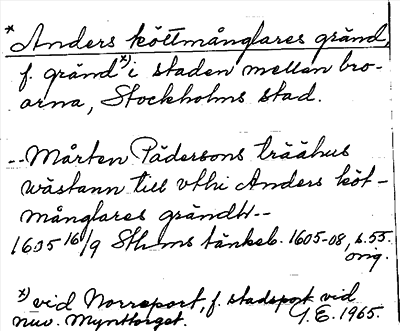 * Anders köttmånglares gränd,
f. gränd x) i staden mellan bro-
arna, Stockholms stad.
-- Mårten Pädersons träähus
wästann till vthi Anders köt-
månglares grändh --
1605 16/9 Sthms tänkeb. 1605-08, s. 55.
orig.
x) vid Norreport, f. stadsport vid
nuv. Mynttorget. G.E. 1965.